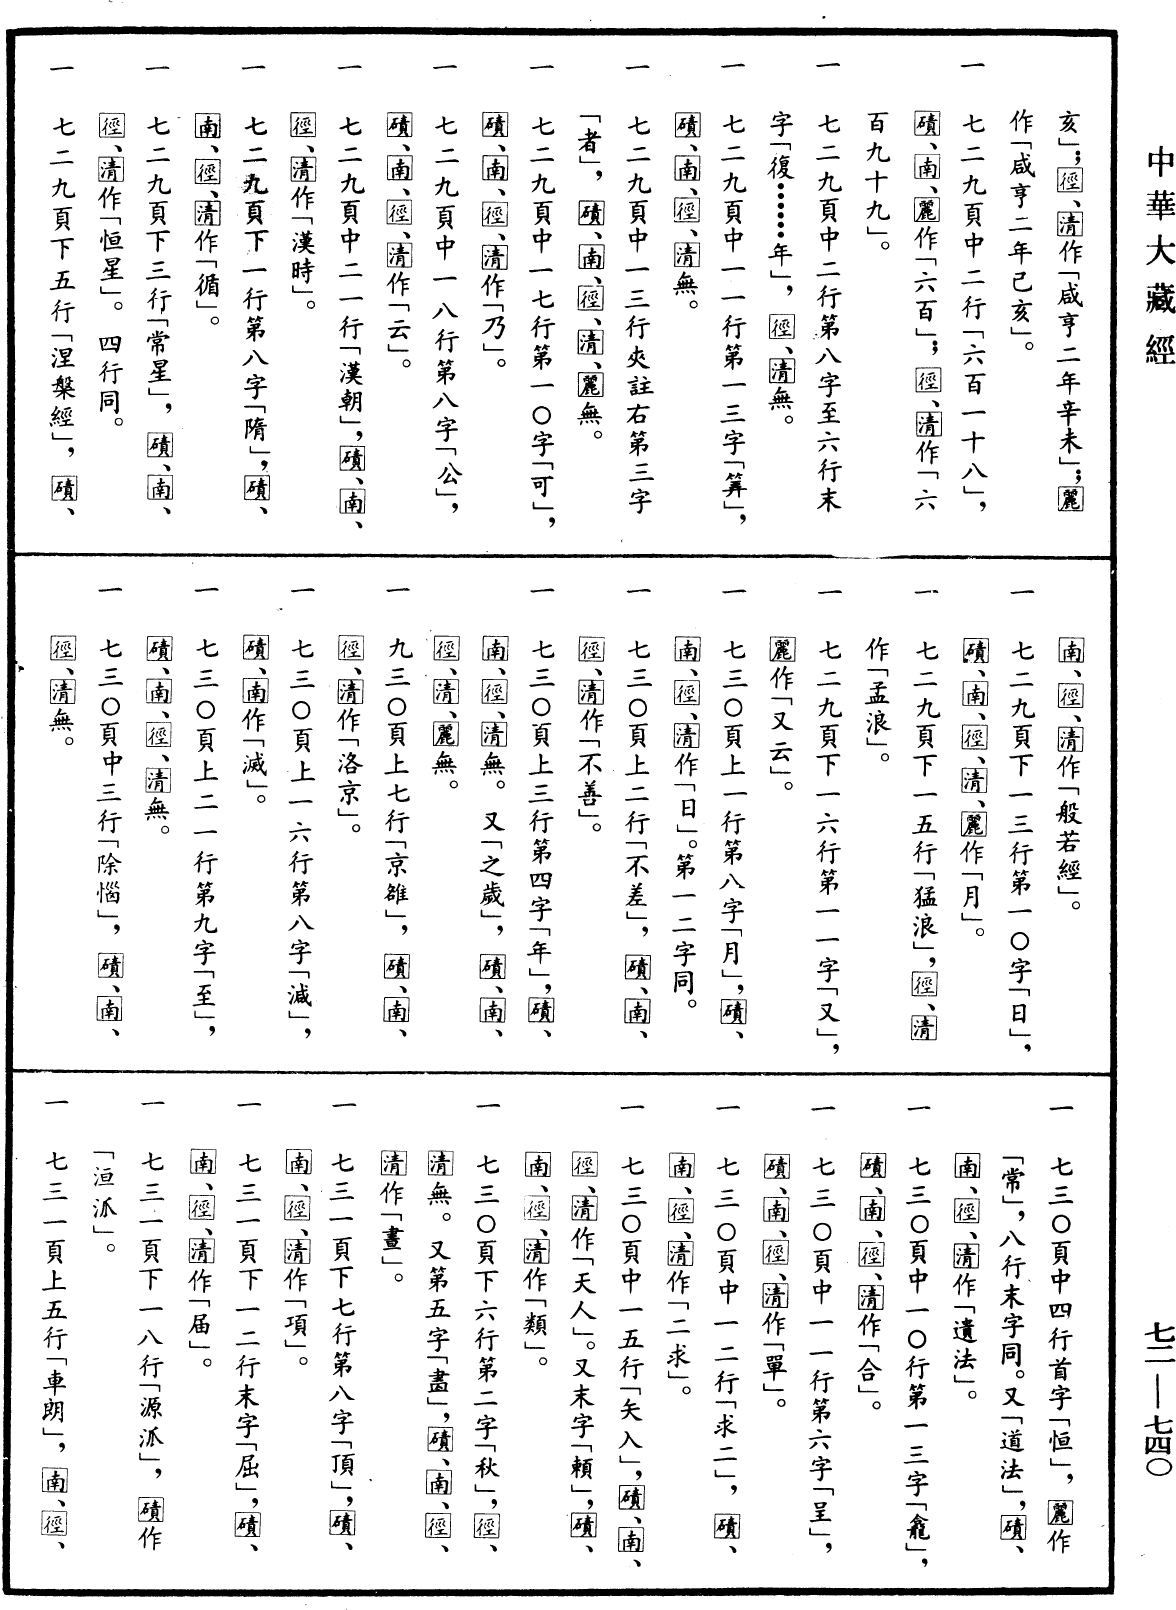 中華大藏經
七二—七四〇
亥」；徑、清作「咸亨二年辛未」；麗
作「咸亨二年己亥」。
一 七二九頁中二行「六百一十八」，
磧、南、麗作「六百」；徑、清作「六
百九十九」。
一 七二九頁中二行第八字至六行末
字「復……年」，徑、清無。
一 七二九頁中一一行第一三字「筭」，
磧、南、徑、清無。
一 七二九頁中一三行夾註右第三字
「者」，磧、南、徑、清、麗無。
一 七二九頁中一七行第一〇字「可」，
磧、南、徑、清作「乃」。
一 七二九頁中一八行第八字「公」，
磧、南、徑、清作「云」。
一 七二九頁中二一行「漢朝」，磧、南、
徑、清作「漢時」。
一 七二九頁下一行第八字「隋」，磧、
南、徑、清作「循」。
一 七二九頁下三行「常星」，磧、南、
徑、清作「恒星」。四行同。
一 七二九頁下五行「涅槃經」，磧、
南、徑、清作「般若經」。
一 七二九頁下一三行第一〇字「日」，
磧、南、徑、清、麗作「月」。
一 七二九頁下一五行「猛浪」，徑、清
作「孟浪」。
一 七二九頁下一六行第一一字「又」，
麗作「又云」。
一 七三〇頁上一行第八字「月」，磧、
南、徑、清作「日」。第一二字同。
一 七三〇頁上二行「不差」，磧、南、
徑、清作「不善」。
一 七三〇頁上三行第四字「年」，磧、
南、徑、清無。又「之歲」，磧、南、
徑、清、麗無。
一 九三〇頁上七行「京雒」，磧、南、
徑、清作「洛京」。
一 七三〇頁上一六行第八字「減」，
磧、南作「滅」。
一 七三〇頁上二一行第九字「至」，
磧、南、徑、清無。
一 七三〇頁中三行「除惱」，磧、南、
徑、清無。
一 七三〇頁中四行首字「恒」，麗作
「常」，八行末字同。又「道法」，磧、
南、徑、清作「遺法」。
一 七三〇頁中一〇行第一三字「龕」，
磧、南、徑、清作「合」。
一 七三〇頁中一一行第六字「呈」，
磧、南、徑、清作「單」。
一 七三〇頁中一二行「求二」，磧、
南、徑、清作「二求」。
一 七三〇頁中一五行「矢入」，磧、南、
徑、清作「天人」。又末字「賴」，磧、
南、徑、清作「類」。
一 七三〇頁下六行第二字「秋」，徑、
清無。又第五字「盡」，磧、南、徑、
清作「晝」。
一 七三一頁下七行第八字「頂」，磧、
南、徑、清作「項」。
一 七三一頁下一二行末字「屈」，磧、
南、徑、清作「届」。
一 七三一頁下一八行「源派」，磧作
「洹派」。
一 七三一頁上五行「車朗」，南、徑、